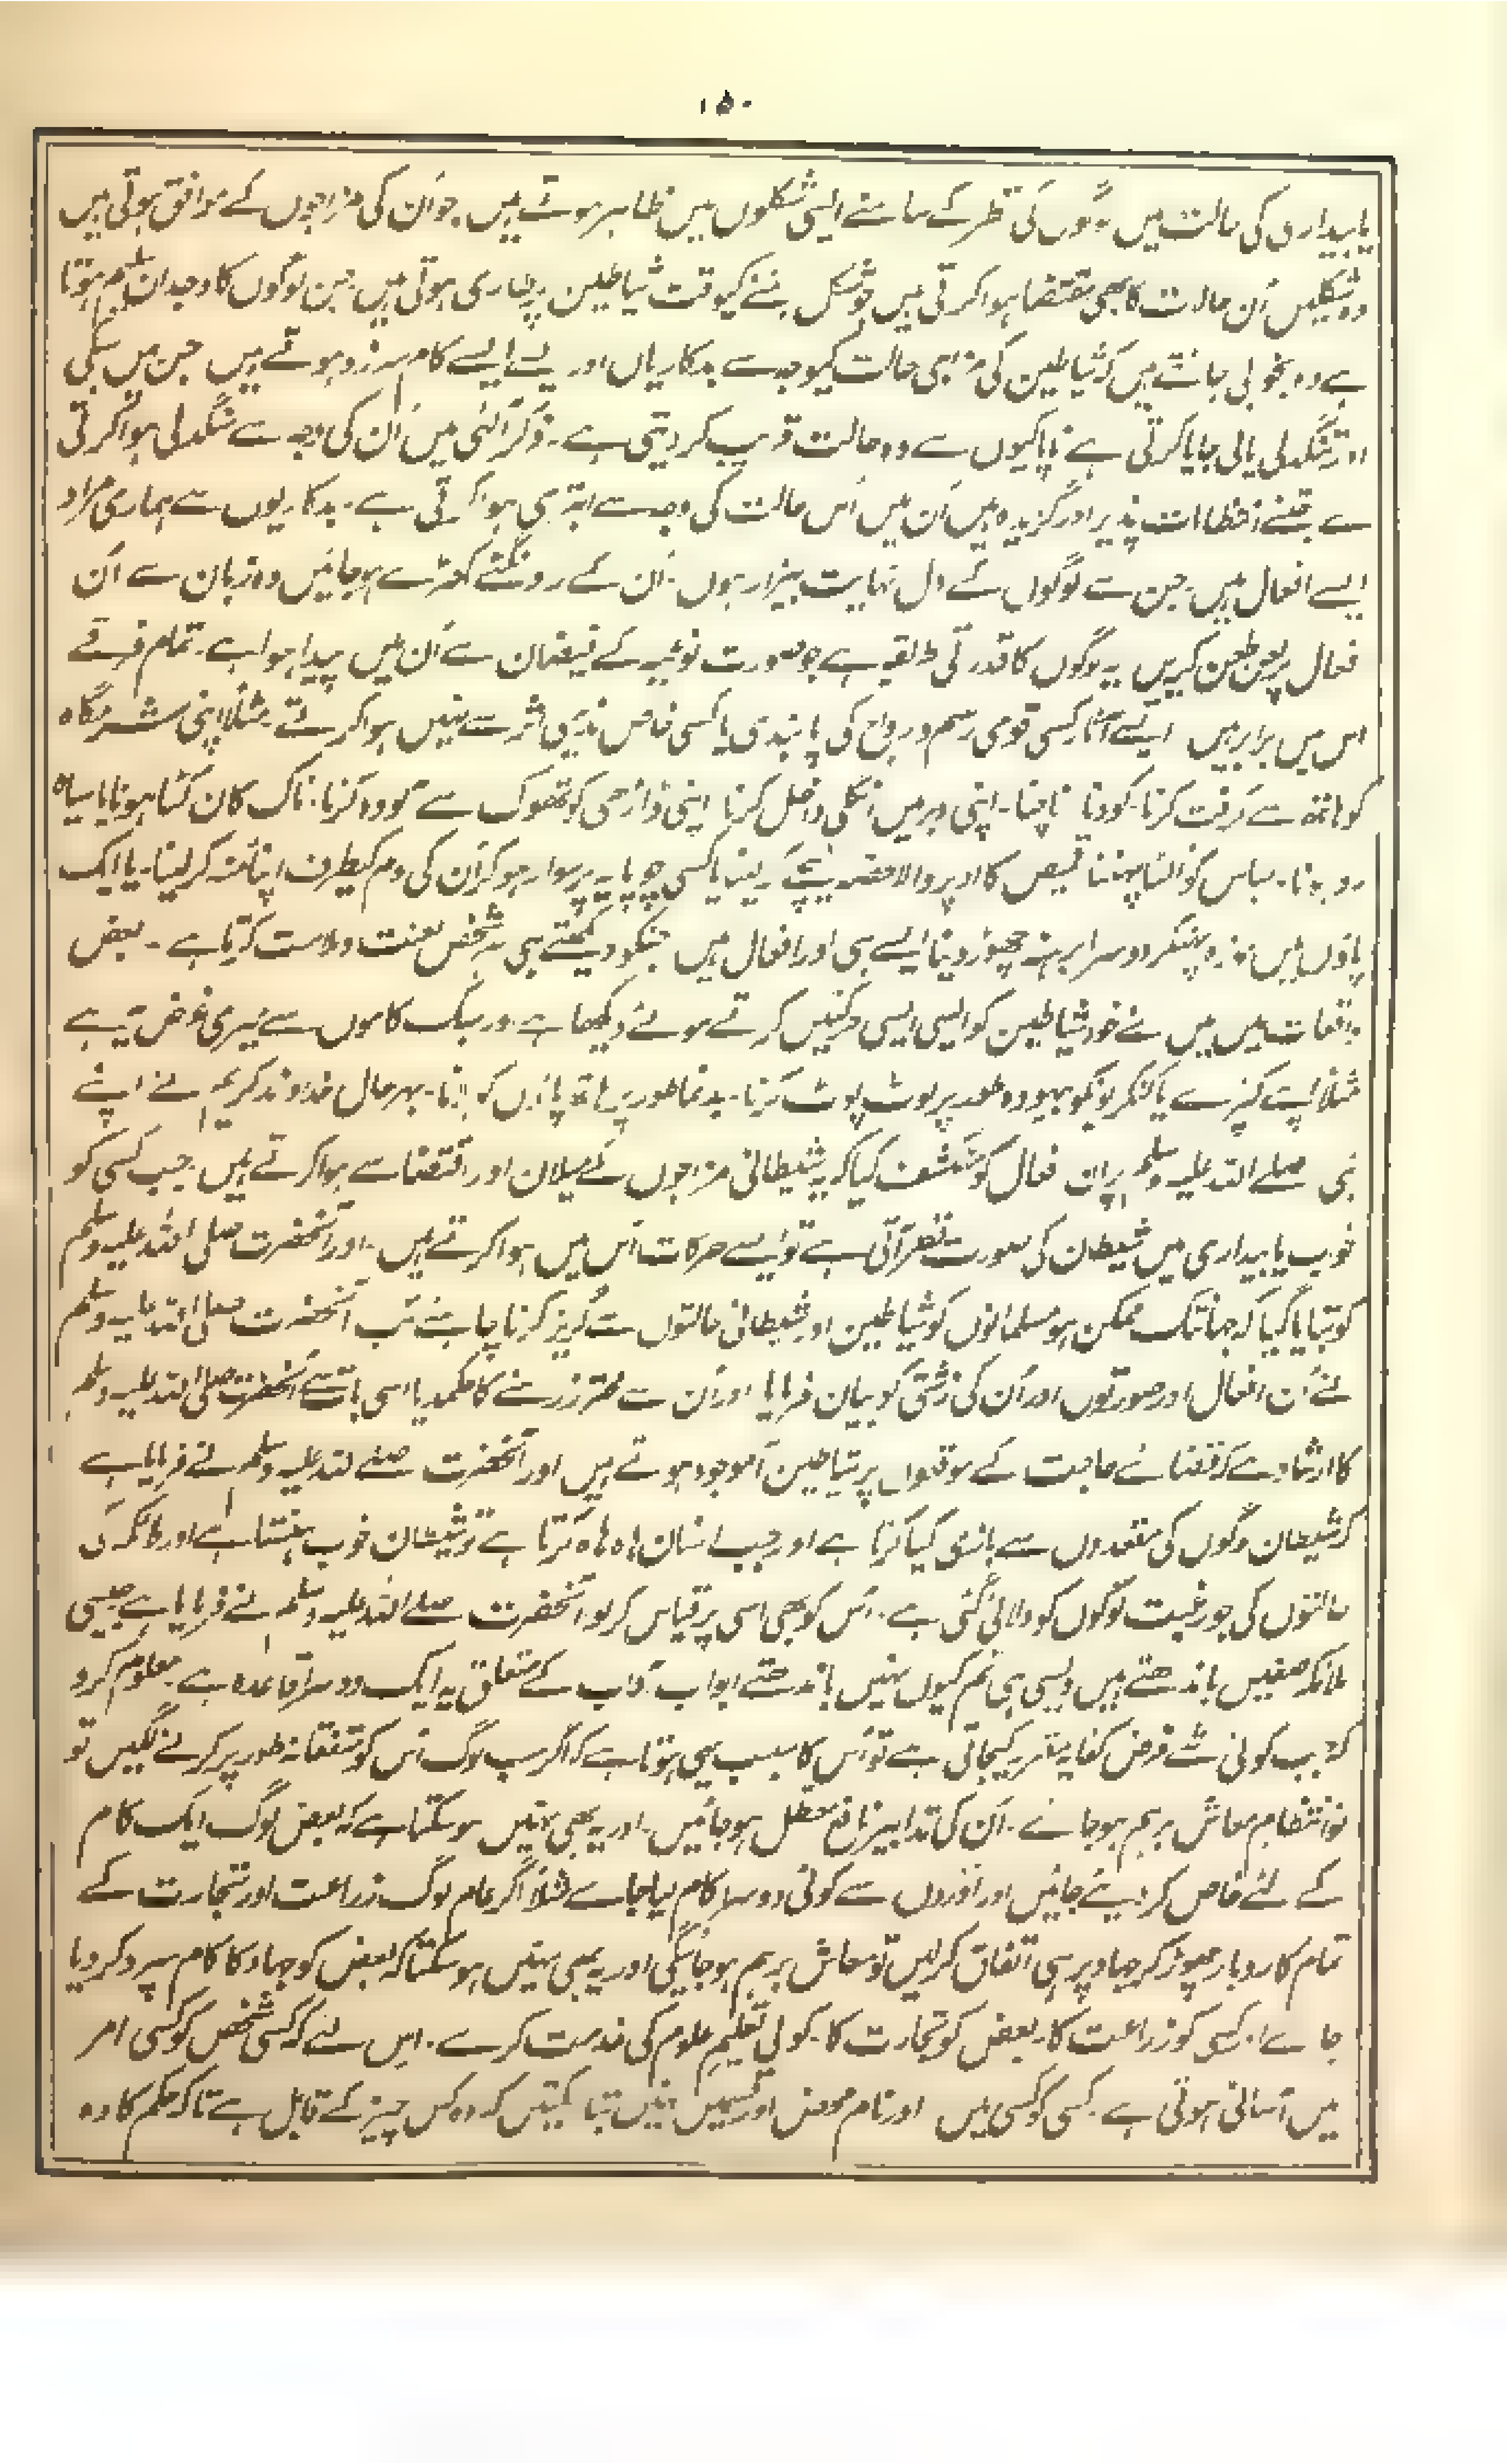 ۱۵۰
یا بیداری کی حالت میں لوگوں کی نظر کے سامنے ایسی شکلوں میں ظاہر ہوتے ہیں۔ جو اُن کی مزاجوں کے موافق ہوتی ہیں
وہ شکلیں اُن حالات کا بھی مقتضا ہوا کرتی ہیں جو شکل بننے کیوقت شیاطین پر طاری ہوتی ہیں۔ جن لوگوں کا وجدان سلیم ہوتا
ہے وہ بخوبی جانتے ہیں کہ شیاطین کی مزاجی حالت کیوجہ سے بدکاریاں اور ایسے ایسے کام سرزد ہوتے ہیں جن میں سبکی
اور تنگدلی پائی جایا کرتی ہے ناپاکیوں سے وہ حالت قریب کر دیتی ہے۔ ذکر آلٰہی میں اُن کی وجہ سے سنگدلی ہوا کرتی
ہے جتنے انتظامات پذیر اور گزیدہ ہیں اُن میں اُس حالت کی وجہ سے ابتری ہوا کرتی ہے۔ بدکاریوں سے ہماری مراد
ایسے افعال ہیں۔ جن سے لوگوں کے دل نہایت بیزار ہوں۔ اُن کے رونگٹے کھڑے ہو جائیں وہ زبان سے اُن
فعال پر لعن طعن کریں یہ لوگوں کا قدرتی طریقہ ہے جو صورت نوعیہ کے فیضان سے اُن میں پیدا ہوا ہے۔ تمام فرقے
اس میں برابر ہیں ایسے آثار کسی قومی رسم و رواج کی پابندی یا کسی خاص مذہبی اثر سے نہیں ہوا کرتے۔ مثلاً اپنی شرمگاہ
کو ہاتھ سے گرفت کرنا۔ کودنا ناچنا۔ اپنی دبر میں انگلی داخل کرنا اپنی ڈاڑھی کو تھوک سے آلودہ کرنا۔ ناک کان کٹا ہونا یا سیاہ
رو ہونا۔ لباس کو اُلٹا پہننا قمیص کا اوپر والا حصہ نیچے کر لینا یا کسی چوپایہ پر سوار ہو کر اُن کی دم کیطرف اپنا منہ کر لینا۔ یا ایک
پاؤں میں موزہ پہنکر دوسرا برہنہ چھوڑ دینا ایسے ہی اور افعال ہیں جنکو دیکھتے ہی ہر شخص لعنت و ملامت کرتا ہے۔ بعض
واقعات میں میں نے خود شیاطین کو ایسی ایسی حرکتیں کرتے ہوئے دیکھا ہے۔ اور سبک کاموں سے میری غرض یہ ہے
مثلاً اپنے کپڑے یا کنکریونکو بیہودہ طور پر لوٹ پوٹ کرنا۔ بدنما طور پر ہاتھ پاؤں کو ہلانا۔ بہرحال خداوند کریم نے اپنے
نبی صلے اللہ علیہ وسلم پر ان فعال کو منکشف کیا کہ یہ شیطانی مزاجوں کے میلان اور اقتضا سے ہوا کرتے ہیں۔ جب کسی کو
خوب یا بیداری میں شیطان کی صورت نظر آتی ہے تو ایسے حرکات اُس میں ہوا کرتے ہیں۔ اور آنحضرت صلی اللہ علیہ وسلم
کو بتایا گیا کہ جہانتک ممکن ہو مسلمانوں کو شیاطین اور شیطانی حالتوں سے گریز کرنا چاہئے تب آنحضرت صلی اللہ علیہ وسلم
نے اُن افعال اور صورتوں اور اُن کی زشتی کو بیان فرمایا اور اُن سے محترز رہنے کا حکمدیا اسی بات سے آنحضرت صلی اللہ علیہ وسلم
کا ارشاد ہے کہ قضائے حاجت کے موقعوں پر شیاطین آ موجود ہوتے ہیں اور آنحضرت صلے اللہ علیہ وسلم نے فرمایا ہے
کہ شیطان لوگوں کی مقعدوں سے بازی کیا کرتا ہے اور جب انسان ہاہ ہاہ کرتا ہے تو شیطان خوب ہنستا ہے اور ملائکہ کی
حالتوں کی جو رغبت لوگوں کو دلائی گئی ہے۔ اُس کو بھی اسی پر قیاس کر لو آنحضرت صلے اللہ علیہ وسلم نے فرمایا ہے جیسی
ملائکہ صفیں باندھتے ہیں ویسی ہی تم کیوں نہیں باندھتے ابواب آداب کے متعلق یہ ایک دوسرا قاعدہ ہے۔ معلوم کرو
کہ جب کوئی شے فرض کفایہ مقرر کیجاتی ہے تو اُس کا سبب یہی ہوتا ہے کہ اگر سب لوگ اُس کو متفقانہ طور پر کرنے لگیں تو
تو انتظام معاش برہم ہو جائے۔ اُن کی تدابیر نافع معطل ہو جائیں۔ اور یہ بھی نہیں ہو سکتا ہے کہ بعض لوگ ایک کام
کے لئے خاص کر دئیے جائیں اور اوروں سے کوئی دوسرا کام لیا جاے مثلاً اگر عام لوگ زراعت اور تجارت کے
تمام کاروبار چھوڑ کر جہاد پر ہی اتفاق کر لیں تو معاش برہم ہو جائیگی اور یہ بھی نہیں ہو سکتا کہ بعض کو جہاد کا کام سپرد کر دیا
جاے۔ کسی کو زراعت کا۔ بعض کو تجارت کا۔ کوئی تعلیم علوم کی خدمت کرے۔ اِس لئے کہ کسی شخص کو کسی امر
میں آسانی ہوتی ہے۔ کسی کو کسی میں اور نام محض اور قسمیں نہیں بتا سکتیں کہ وہ کس چیز کے قابل ہے تا کہ حکم کا وہ